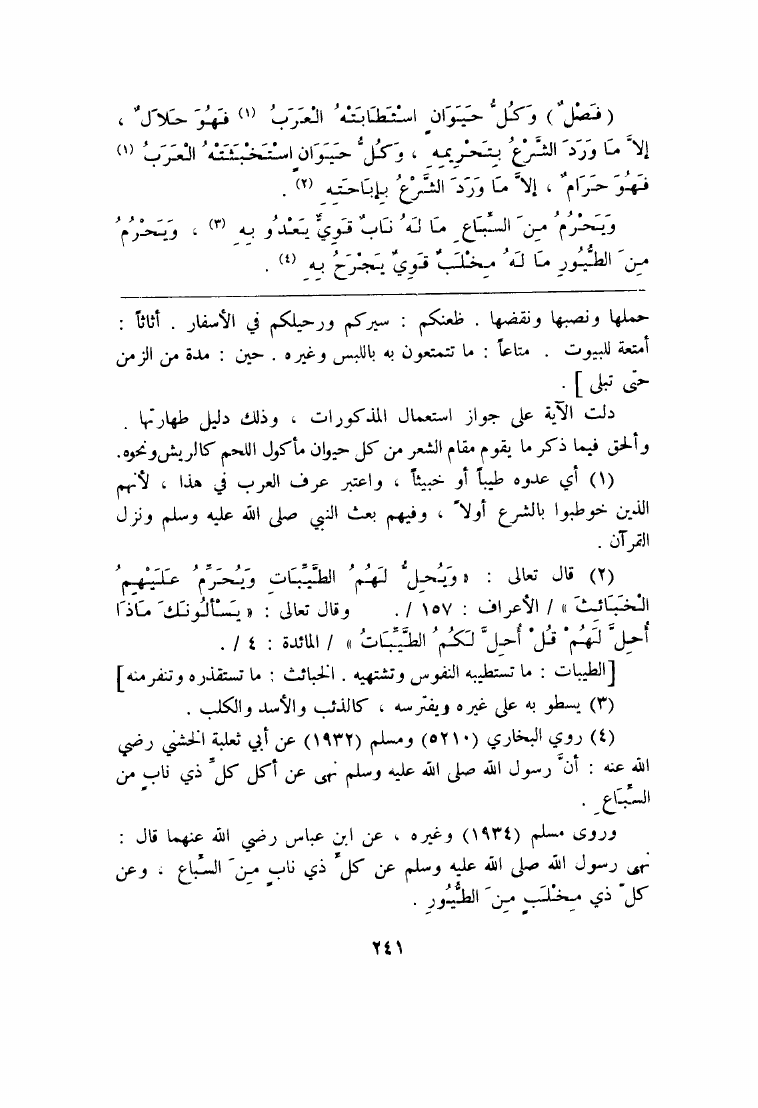 ( فَصْلٌ ) وَكُلُّ حَيَوَانٍ اسْتَطَابَتْهُ الْعَرَبُ (١) فَهُوَ حَلَالٌ ،
إلاَّ مَا وَرَدَ الشَّرْعُ بِتَحْرِيمِهِ ، وَكُلُّ حَيَوَانٍ اسْتَخْبَثَتْهُ الْعَرَبُ (١)
فَهُوَ حَرَامٌ ، إلاَّ مَا وَرَدَ الشَّرْعُ بِإبَاحَتِهِ (٢) .
وَيَحْرُمُ مِنَ السِّبَاعِ مَا لَهُ نَابٌ قَوِيٌّ يَعْدُو بِهِ (٣) ، وَيَحْرُمُ
مِنَ الطُّيُورِ مَا لَهُ مِخْلَبٌ قَوِيٌّ يَجْرَحُ بِهِ (٤) .
حملها ونصبها ونقضها . ظعنكم : سيركم ورحيلكم في الأسفار . أثاثاً :
أمتعة للبيوت . متاعاً : ما تتمتعون به باللبس وغيره . حين : مدة من الزمن
حتى تبلى ] .
دلت الآية على جواز استعمال المذكورات ، وذلك دليل طهارتها .
وألحق فيما ذكر ما يقوم مقام الشعر من كل حيوان مأكول اللحم كالريش ونحوه.
(١) أي عدوه طيباً أو خبيثاً ، واعتبر عرف العرب في هذا ، لأنهم
الذين خوطبوا بالشرع أولاً ، وفيهم بعث النبي صلى الله عليه وسلم ونزل
القرآن .
(٢) قال تعالى : « وَيُحِلُّ لَهُمُ الطَّيِّبَاتِ وَيُحَرِّمُ عَلَيْهِمُ
الْخَبَائِثَ » / الأعراف : ١٥٧ / . وقال تعالى : « يَسْأَلُونَكَ مَاذَا
أُحِلَّ لَهُمْ قُلْ أُحِلَّ لَكُمُ الطَّيِّبَاتُ » / المائدة : ٤ / .
[الطيبات : ما تستطيبه النفوس وتشتهيه . الخبائث : ما تستقذره وتنفر منه]
(٣) يسطو به على غيره ويفترسه ، كالذئب والأسد والكلب .
(٤) روي البخاري (٥٢١٠) ومسلم (١٩٣٢) عن أبي ثعلبة الخشني رضي
الله عنه : أنَّ رسول الله صلى الله عليه وسلم نهى عن أكل كلِّ ذي نابٍ من
السِّبَاعِ .
وروى مسلم (١٩٣٤) وغيره ، عن ابن عباس رضي الله عنهما قال :
نهى رسول الله صلى الله عليه وسلم عن كلِّ ذي نابٍ مِنَ السِّباع ، وعن
كلِّ ذي مِخْلَبٍ مِنَ الطُّيُورِ .
٢٤١